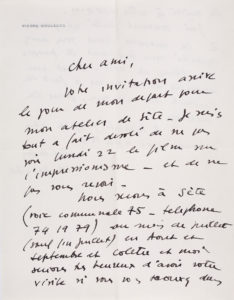 PIERRE SOULAGES
cher ami,
Votre invitation arrive
le jour de mon départ pour
mon atelier de Sète - Je suis
tout à fait désolé de ne pas
voir lundi 22 le film sur
l'impressionisme - et de ne
pas vous revoir -
Nous serons à Sète
(voie communale 75 - téléphone
74 19 79) au mois de juillet
en Aout et
septembre et Colette et moi
serions heureux d'avoir votre
visite si vous vous